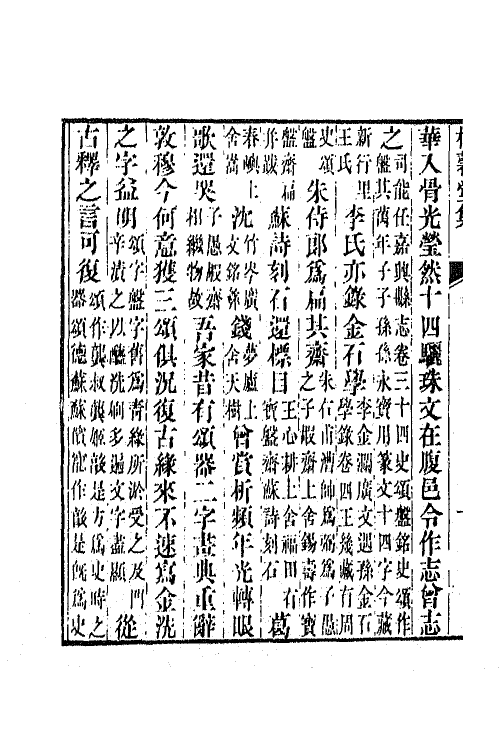 華入骨光瑩然十四驪珠文在腹邑令作志曾志
之司能任嘉興縣志卷三十四史頌盤銘史頌作
盤其萬年子子孫孫永寶用篆文十四字今藏
新行里
王氏李氏亦錄金石學李金瀾廣文遇孫金石
學錄卷四王幾藏有周
史頌
盤朱侍郎爲扁其齋朱右甫師爲弼爲子愚
之子嘏齋上舍錫壽作寶
盤齋扁
并跋蘇詩刻石還標目王心耕上舍福田有
寶盤齋蘇詩刻石葛
春嶼上
舍嵩沈竹岑廣
文銘彝錢夢廬上
舍天樹曾賞析頻年光轉眼
歌還哭子愚嘏齋
相繼物故吾家昔有頌器二字畫典重辭
敦穆今何意獲三頌俱況復古緣來不速寫金洗
之字益明頌字盤字舊爲青綠所淤受之及門
辛漬之以醯洗刷多遍文字盡顯從
古釋之言可復頌作龔叔龔姬敦是方爲史時之
器頌德蘇蘇儐寵作敦是旣爲史